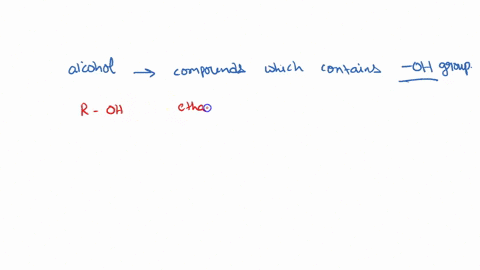 alcohol → compounds which contains -OH group.
R - OH etha